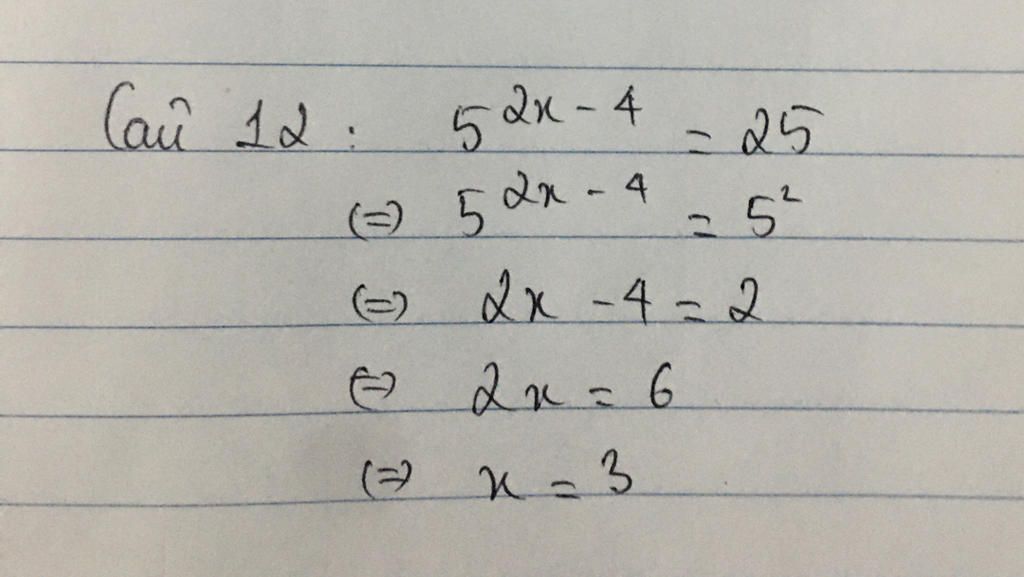 Câu 12 : 5^{2x-4} = 25
(=) 5^{2x-4} = 5²
(=) 2x - 4 = 2
(=) 2x = 6
(=) x = 3